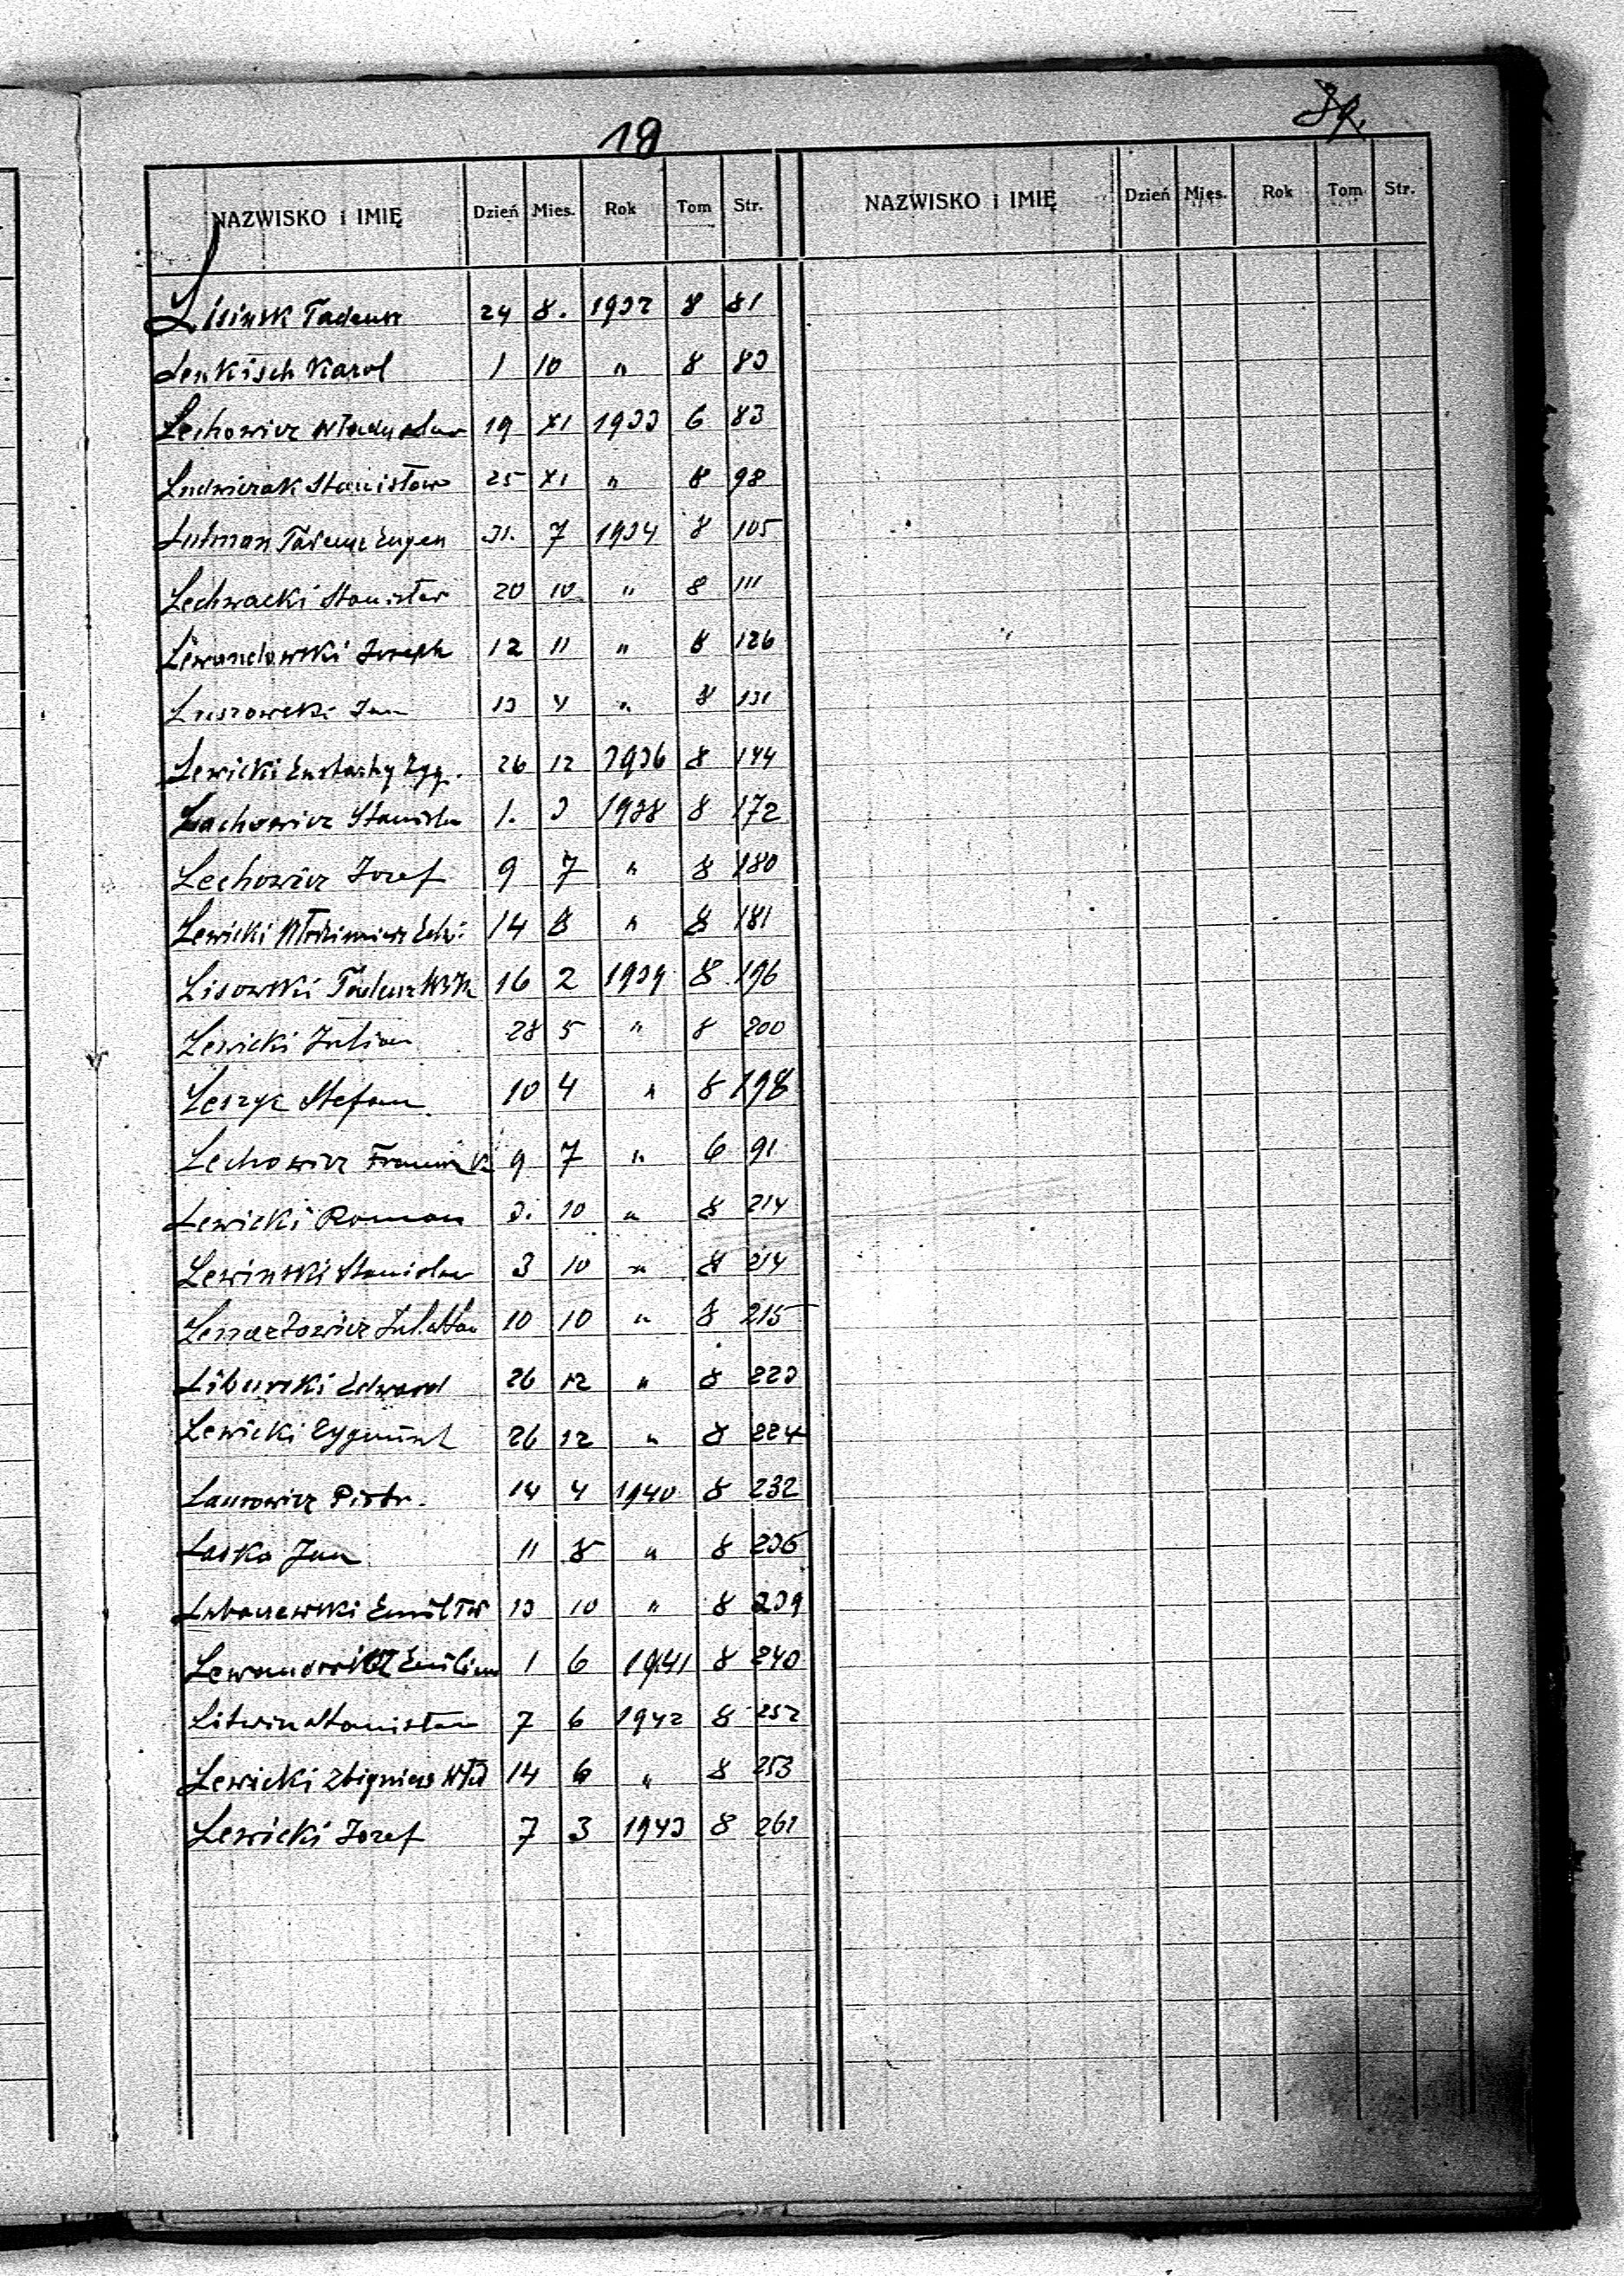 18
NAZWISKO i IMIĘ Dzień Mies. Rok Tom Str. NAZWISKO i IMIĘ Dzień Mies. Rok Tom Str.
Lisinsk Tadeusz 24 8. 1932 8 81
Lenkisch Karol 1 10 " 8 83
Lechowicz Władysław 19 XI 1933 6 83
Ludwiczak Stanisław 25 XI " 8 98
Lutman Tadeusz Eugen 31. 7 1934 8 105
Lechwacki Stanisław 20 10 " 8 111
Lewandowski Joseph 12 11 " 8 126
Luszowski Jan 13 4 " 8 131
Lewicki Eustachy Zyg. 26 12 1936 8 144
Lachowicz Stanisła 1. 3 1938 8 172
Lechowicz Jozef 9 7 " 8 180
Lewicki Włodzimierz 14 8 " 8 181
Lisowski Tadeusz 16 2 1939 8 196
Lewicki Julian 28 5 " 8 200
Leszyc Stefan 10 4 " 8 198
Lechowicz 9 7 " 6 91
Lewicki Roman 3. 10 " 8 214
Lewinski Stanislaw 3 10 " 8 214
Lenartowicz 10 10 " 8 215
Liburski Edward 26 12 " 8 223
Lewicki Zygmunt 26 12 " 8 224
Piotr. 14 4 1940 8 232
Lasko Jan 11 8 " 8 236
Emil 13 10 " 8 239
Emilian 1 6 1941 8 240
Litwin Stanisław 7 6 1942 8 252
Lewicki Zbigniew Wł 14 6 " 8 253
Lewicki Jozef 7 3 1943 8 261